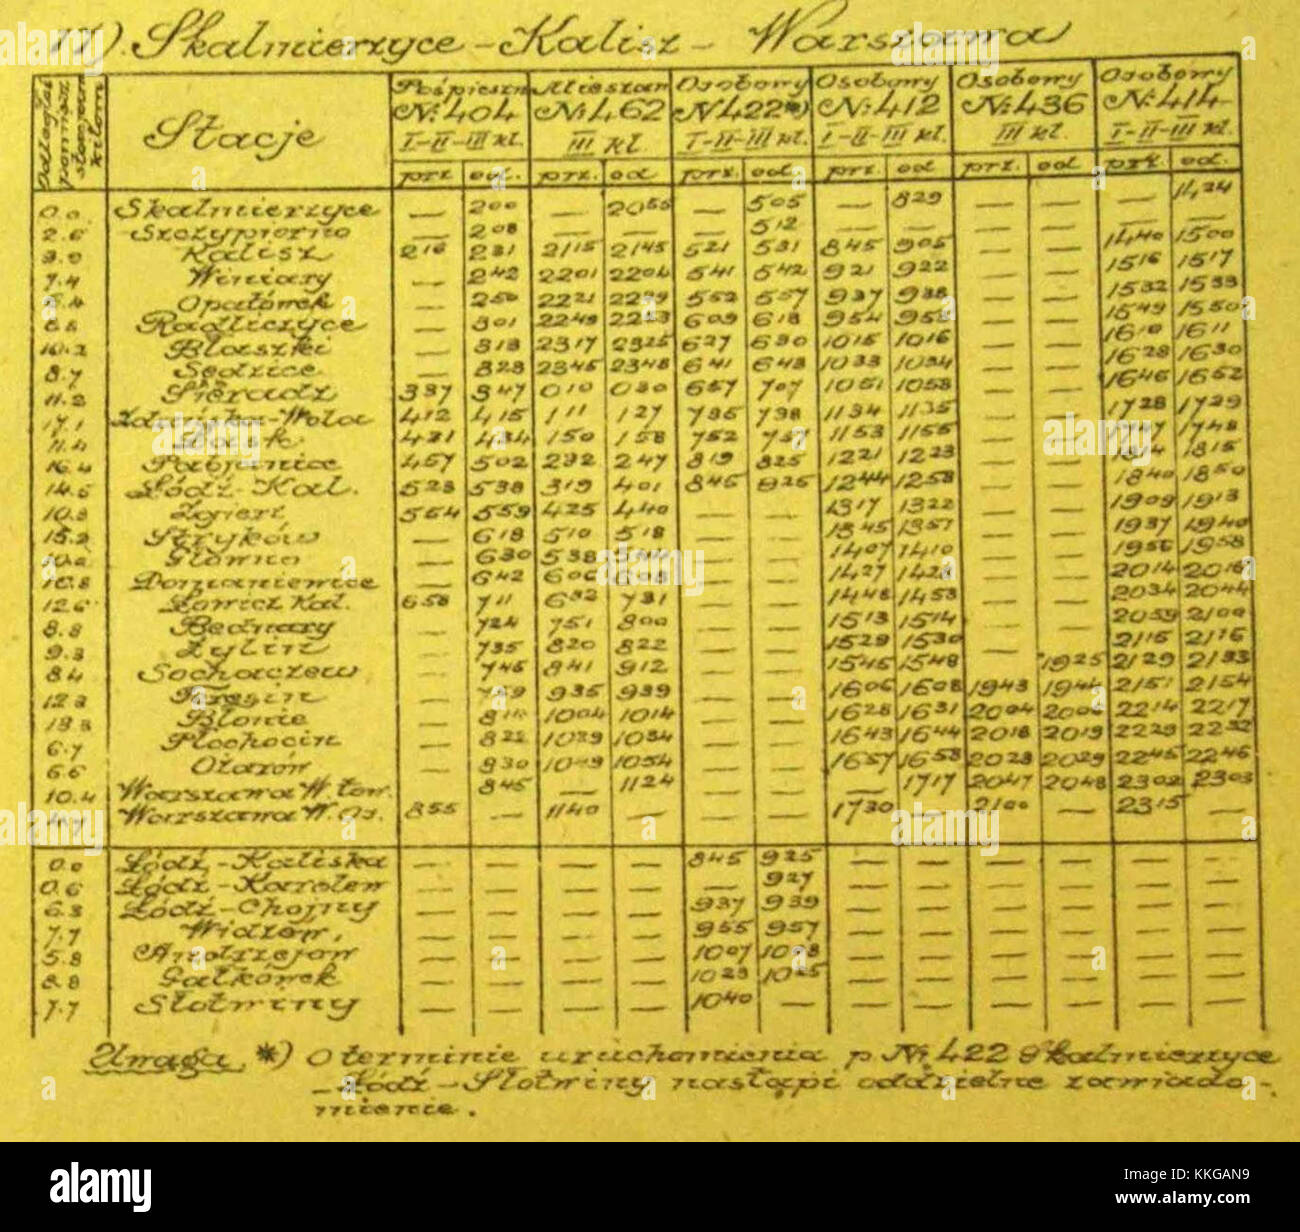 17). Skalmierzyce - Kalisz - Warszawa
Odległość pomiędzy stacjami kilom.
Stacje
Pośpieszn № 404 I-II-III kl. prz. od.
Mieszan № 462 III kl. prz. od
Osobowy № 422 *) I-II-III kl. prz. od
Osobowy № 412 I-II-III kl. prz. od
Osobowy № 436 III kl. prz. od
Osobowy № 414 I-II-III kl. prz. od.
0.0 Skalmierzyce — 200 — 2055 — 505 — 829 — — 1424
2.6 Szczypiorno — 208 — — — 512 — — — — — —
Kalisz 216 231 2115 2145 521 531 845 905 — — 1440 1500
7.4 Winiary — 242 2201 2204 541 542 921 922 — — 1516 1517
Opatówek — 250 2221 552 557 937 938 — — 1532 1533
Radliczyce — 301 2249 609 618 954 — — 1549 1550
10.2 Błaszki — 313 2317 2325 627 630 1015 1016 — — 1610 1611
8.7 Sędzice — 328 2345 2348 641 643 1033 1034 — — 1628 1630
11.2 Sieradz 337 347 010 030 657 707 1051 1058 — — 1646 1652
17.1 Zduńska-Wola 412 415 111 127 735 738 1134 1135 — — 1728 1729
11.4 Łask 421 434 150 158 752 757 1153 1155 — — 1747 1748
16.4 Pabjanice 457 502 232 247 819 825 1221 1223 — — 1814 1815
14.5 Łódź-Kal. 523 538 319 401 845 925 1244 1258 — — 1840 1850
Zgierz 554 559 425 440 — — 1317 1322 — — 1909 1913
15.2 Stryków — 618 510 518 — — 1345 1357 — — 1937 1940
Głowno — 630 538 — — 1407 1410 — — 1956 1958
Domaniewice — 642 606 608 — — 1427 1428 — — 2014 2016
12.6 Łowicz Kal. 658 711 632 731 — — 1448 1453 — — 2034 2044
8.8 Bednary — 724 751 800 — — 1513 1514 — — 2059 2100
9.3 — 735 820 822 — — 1529 1530 — — 2115 2116
8.4 Sochaczew — 746 841 912 — — 1545 1548 — 1925 2129 2133
— 759 935 939 — — 1606 1608 1943 1944 2151 2154
Błonie — 1004 1014 — — 1628 1631 2004 2006 2214 2217
6.7 Płochocin — 822 1029 1034 — — 1643 1644 2018 2019 2229 2232
6.6 Ożarów — 830 1049 1054 — — 1657 1658 2028 2029 2245 2246
10.4 Warszawa W. tow. — 845 — 1124 — — — 1717 2047 2048 2302 2303
4.7 Warszawa W. os. 855 — 1140 — — — 1730 — 2100 — 2315 —
0.0 Łódź-Kaliska — — — — 845 925 — — — — — —
0.6 Łódź-Karolew — — — — — 927 — — — — — —
6.3 Łódź-Chojny — — — — 937 939 — — — — — —
7.7 Widzew. — — — — 955 957 — — — — — —
5.8 Andrzejów — — — — 1007 1008 — — — — — —
8.8 Gałkówek — — — — 1023 1025 — — — — — —
7.7 Słotwiny — — — — 1040 — — — — — — —
Uwaga *) O terminie uruchomienia p. № 422 Skalmierzyce
- Łódź - Słotwiny nastąpi oddzielne zawiado-
mienie.
alamy
Image ID: KKGAN9
www.alamy.com